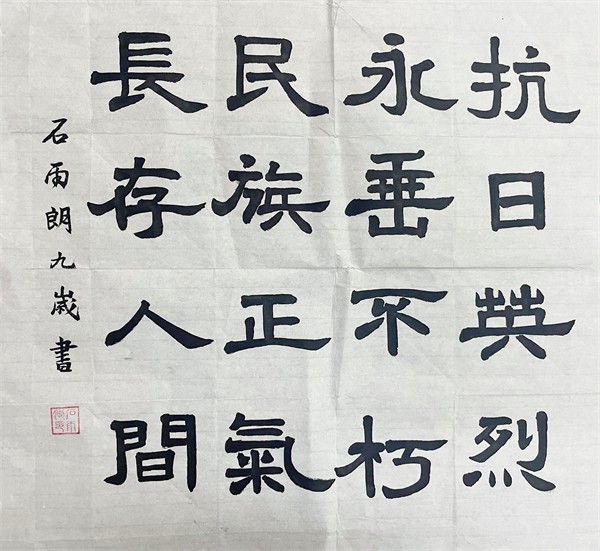 抗日英烈
永垂不朽
民族正氣
長存人間
石雨朗九歲書